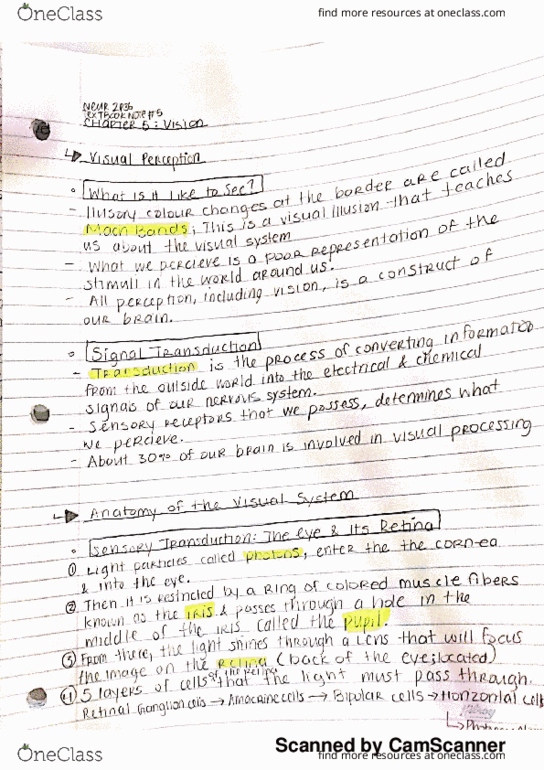 OneClass
find more resources at oneclass.com
NEUR 2P36
TEXTBOOK NOTE #5
CHAPTER 5: Vision
Visual Perception
What is it like to see?
- Illusory colour changes at the border are called
Mach Bands; This is a visual illusion that teaches
us about the visual system
- What we percieve is a poor representation of the
stimuli in the world around us.
- All perception, including vision, is a construct of
our brain.
Signal Transduction
- Transduction is the process of converting information
from the outside world into the electrical & chemical
signals of our nervous system.
- Sensory receptors that we possess, determines what
we percieve.
- About 30% of our brain is involved in visual processing
Anatomy of the Visual System
Sensory Transduction: The eye & Its Retina
① Light particles called photons, enter the the cornea
& into the eye.
② Then it is restricted by a ring of colored muscle fibers
known as the iris & passes through a hole in the
middle of the iris called the pupil.
③ From there, the light shines through a lens that will focus
the image on the retina (back of the eye located)
④ 5 layers of cells of the retina that the light must pass through.
Retinal Ganglion cells → Amacrine cells → Bipolar cells → Horizontal cells
Scanned by CamScanner
OneClass
find more resources at oneclass.com